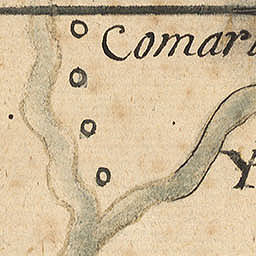 Comari
Y